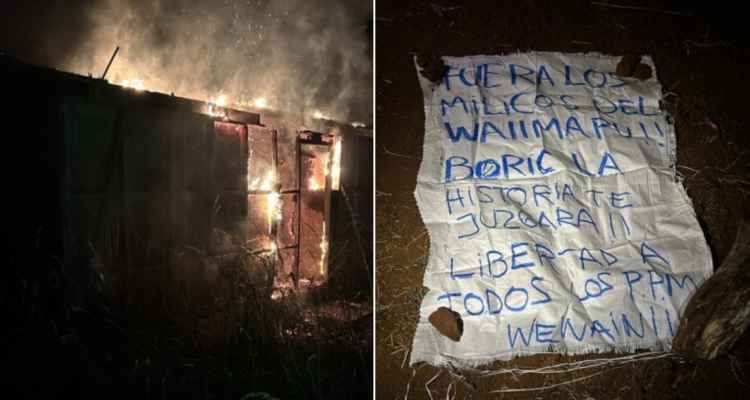 FUERA LOS
MILICOS DEL
WAIIMAPU!!
BORIC LA
HISTORIA TE
JUZGARA!!
LIBERTAD A
TODOS LOS P.P.M
WEWAIN!!